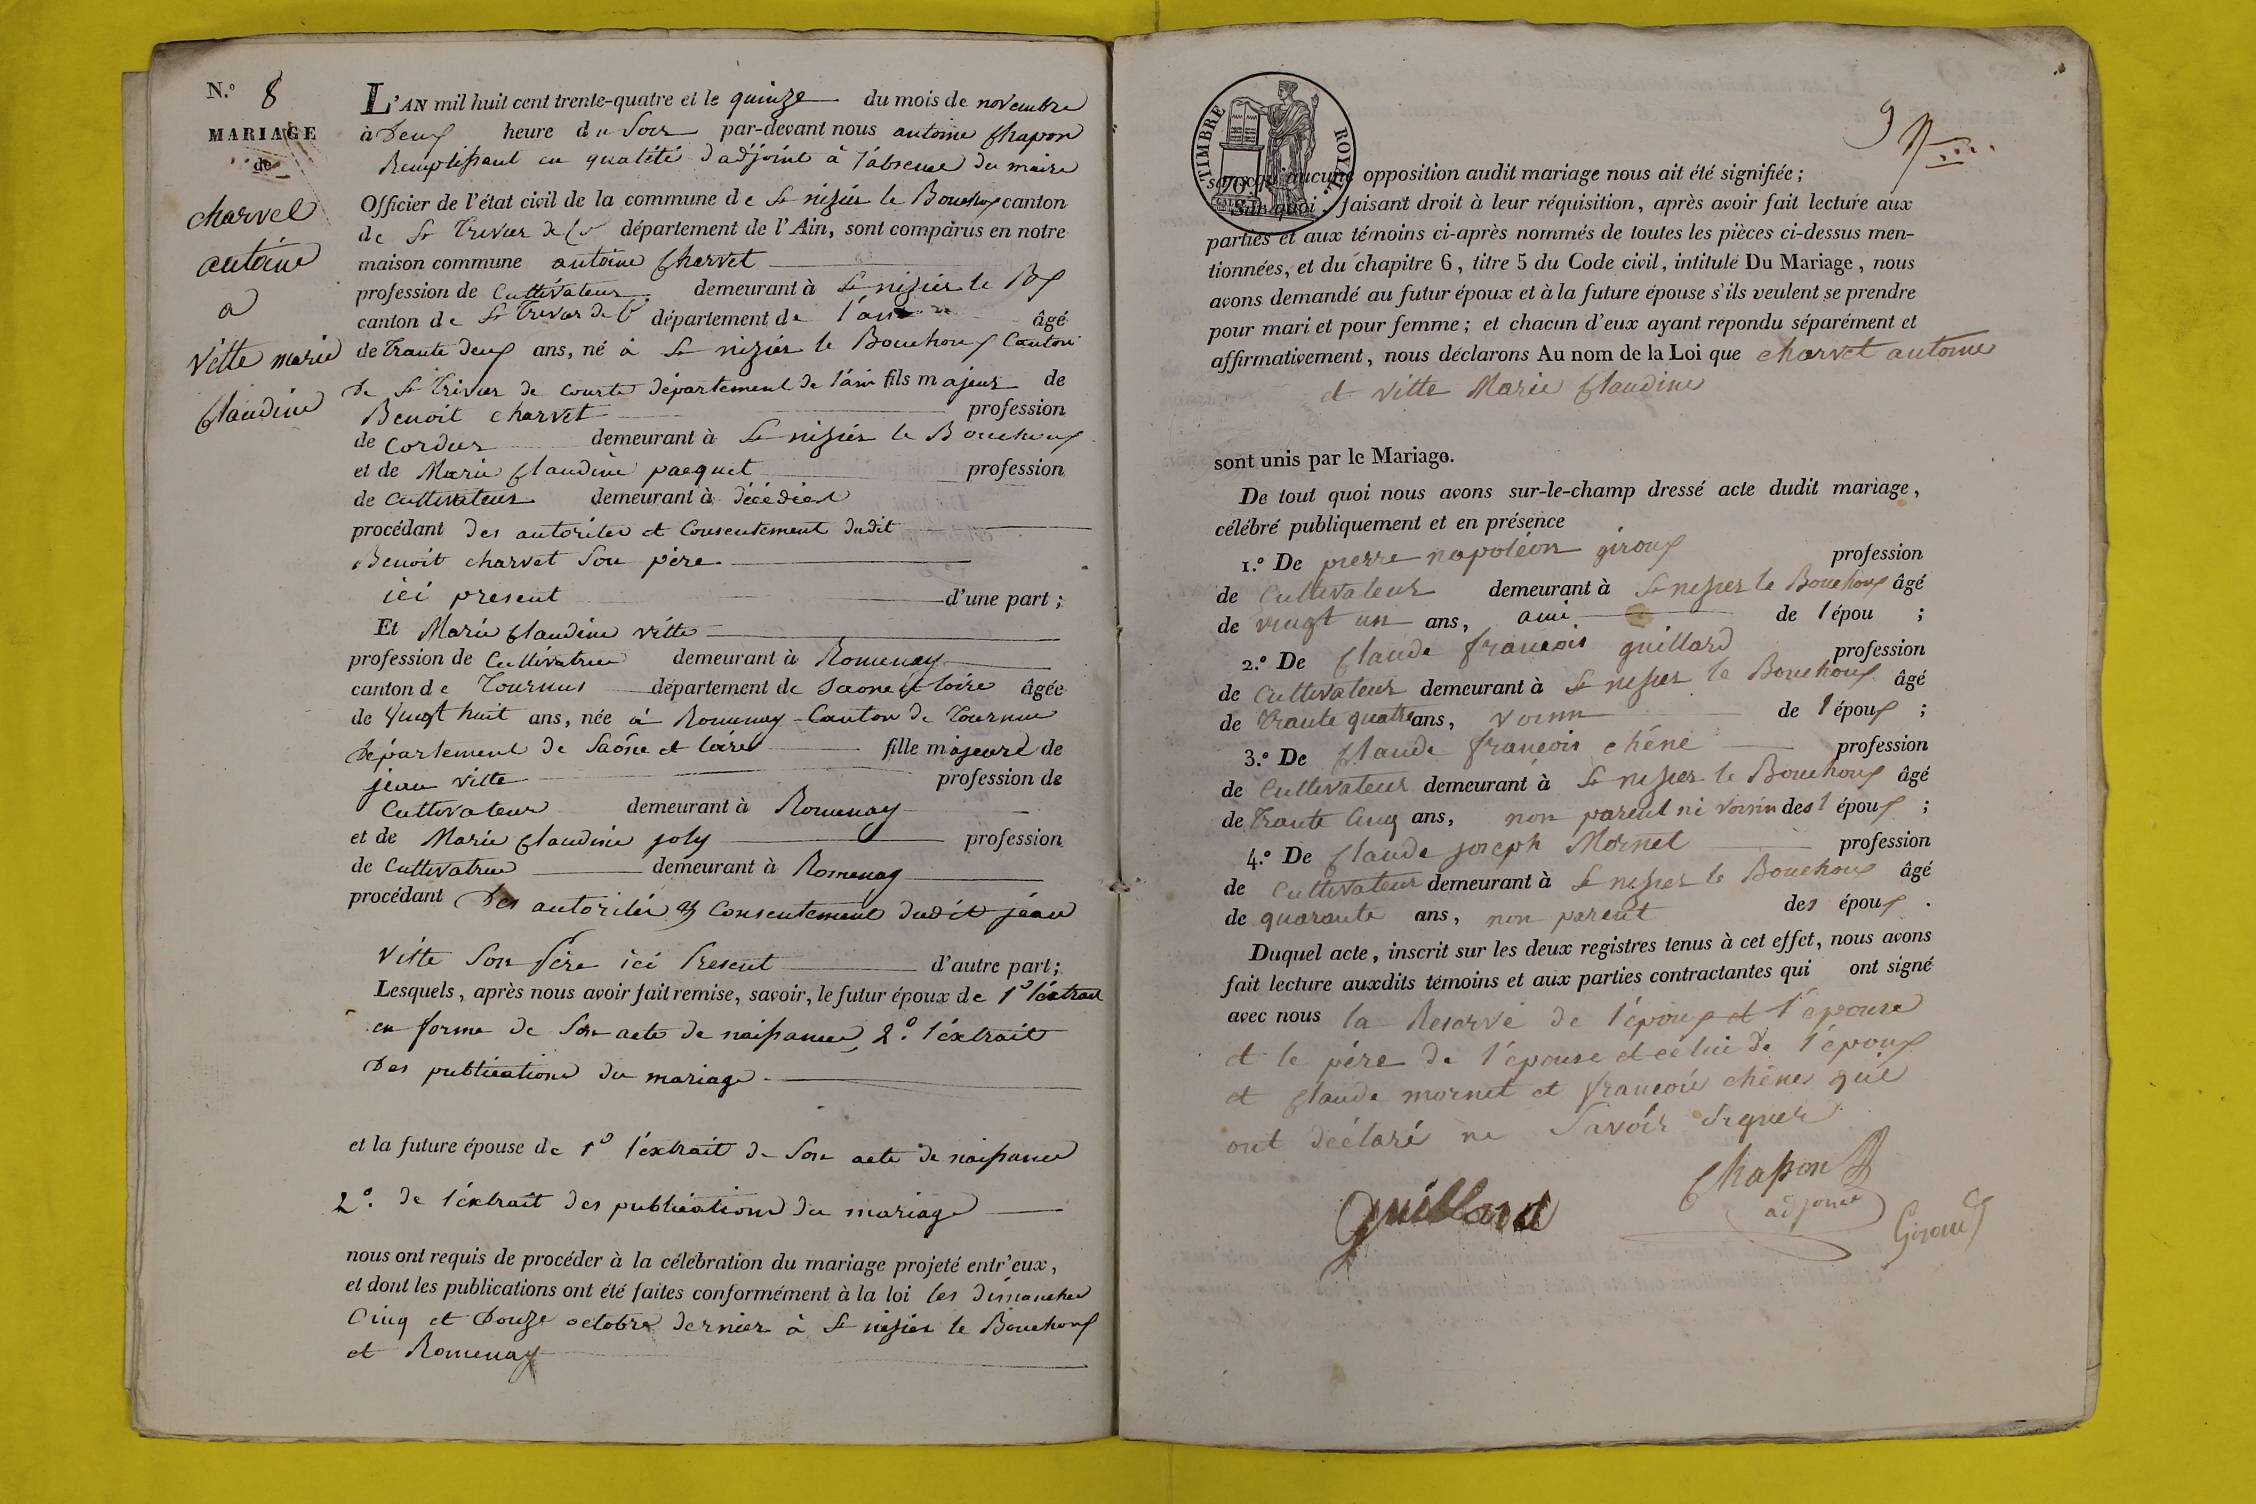 N.° 8
MARIAGE
de
charvel
antoine
a
vitte marie
Claudine
L'AN mil huit cent trente-quatre et le quinze du mois de novembre
à Deux heure du Soir par-devant nous antoine Chapon
Remplissant en qualité d'adjoint à l'absence du maire
Officier de l'état civil de la commune de St nizier le Bouchoux canton
de St Trivier de Cs département de l'Ain, sont comparus en notre
maison commune antoine Charvet
profession de Cultivateur demeurant à St nizier le Bx
canton de St Trivier de C département de l'ain âgé
de Trante deux ans, né à St nizier le Bouchoux Canton
de St Trivier de Courte département de l'ain fils majeur de
Benoit charvet profession
de Cordier demeurant à St nizier le Bouchoux
et de Marie Claudine paequet profession
de Cultivateur demeurant à décédiet
procédant des autorités et Consentement dudit
Benoit charvet Son père
ici present d'une part ;
Et Marie Claudine vitte
profession de Cultivatrice demeurant à Romenay
canton de Tournus département de Saone et loire âgée
de Vingt huit ans, née à Romenay Canton de Tournus
Département de Saône et loire fille majeure de
jean vitte profession de
Cultivateur demeurant à Romenay
et de Marie Claudine joly profession
de Cultivatrice demeurant à Romenay
procédant Des autorités et Consentement dudit jean
Vitte Son Père ici Present d'autre part ;
Lesquels, après nous avoir fait remise, savoir, le futur époux de 1° l'éxtrait
en forme de Son acte de naissance, 2.° l'éxtrait
Des publications du mariage
et la future épouse de 1° l'éxtrait de Son acte de naissance
2.° de l'éxtrait des publications du mariage
nous ont requis de procéder à la célébration du mariage projeté entr'eux,
et dont les publications ont été faites conformément à la loi les dimanches
Cinq et Douze octobre dernier à St nizier le Bouchoux
et Romenay
9
TIMBRE ROYAL
70
sans qu'aucune opposition audit mariage nous ait été signifiée ;
Sur quoi, faisant droit à leur réquisition, après avoir fait lecture aux
parties et aux témoins ci-après nommés de toutes les pièces ci-dessus men-
tionnées, et du chapitre 6, titre 5 du Code civil, intitulé Du Mariage, nous
avons demandé au futur époux et à la future épouse s'ils veulent se prendre
pour mari et pour femme ; et chacun d'eux ayant repondu séparément et
affirmativement, nous déclarons Au nom de la Loi que charvet antoine
et vitte Marie Claudine
sont unis par le Mariage.
De tout quoi nous avons sur-le-champ dressé acte dudit mariage,
célébré publiquement et en présence
1.° De pierre napoléon giroux profession
de Cultivateur demeurant à St nizier le Bouchoux âgé
de vingt un ans, ami de l'épou ;
2.° De Claude françois guillard profession
de Cultivateur demeurant à St nizier le Bouchoux âgé
de Trante quatre ans, voisin de l'époux ;
3.° De Claude françois chéne profession
de Cultivateur demeurant à St nizier le Bouchoux âgé
de Trante Cinq ans, non parent ni voisin des l époux ;
4.° De Claude joseph Mornet profession
de Cultivateur demeurant à St nizier le Bouchoux âgé
de quarante ans, non parent des époux .
Duquel acte, inscrit sur les deux registres tenus à cet effet, nous avons
fait lecture auxdits témoins et aux parties contractantes qui ont signé
avec nous la Reserve de l'époux et l'épouse
et le père de l'épouse et celui de l'époux
et Claude mornet et françois chênes qui
ont déclaré ne Savoir Signer
Chapon
adjoint
Guillard
Giroud